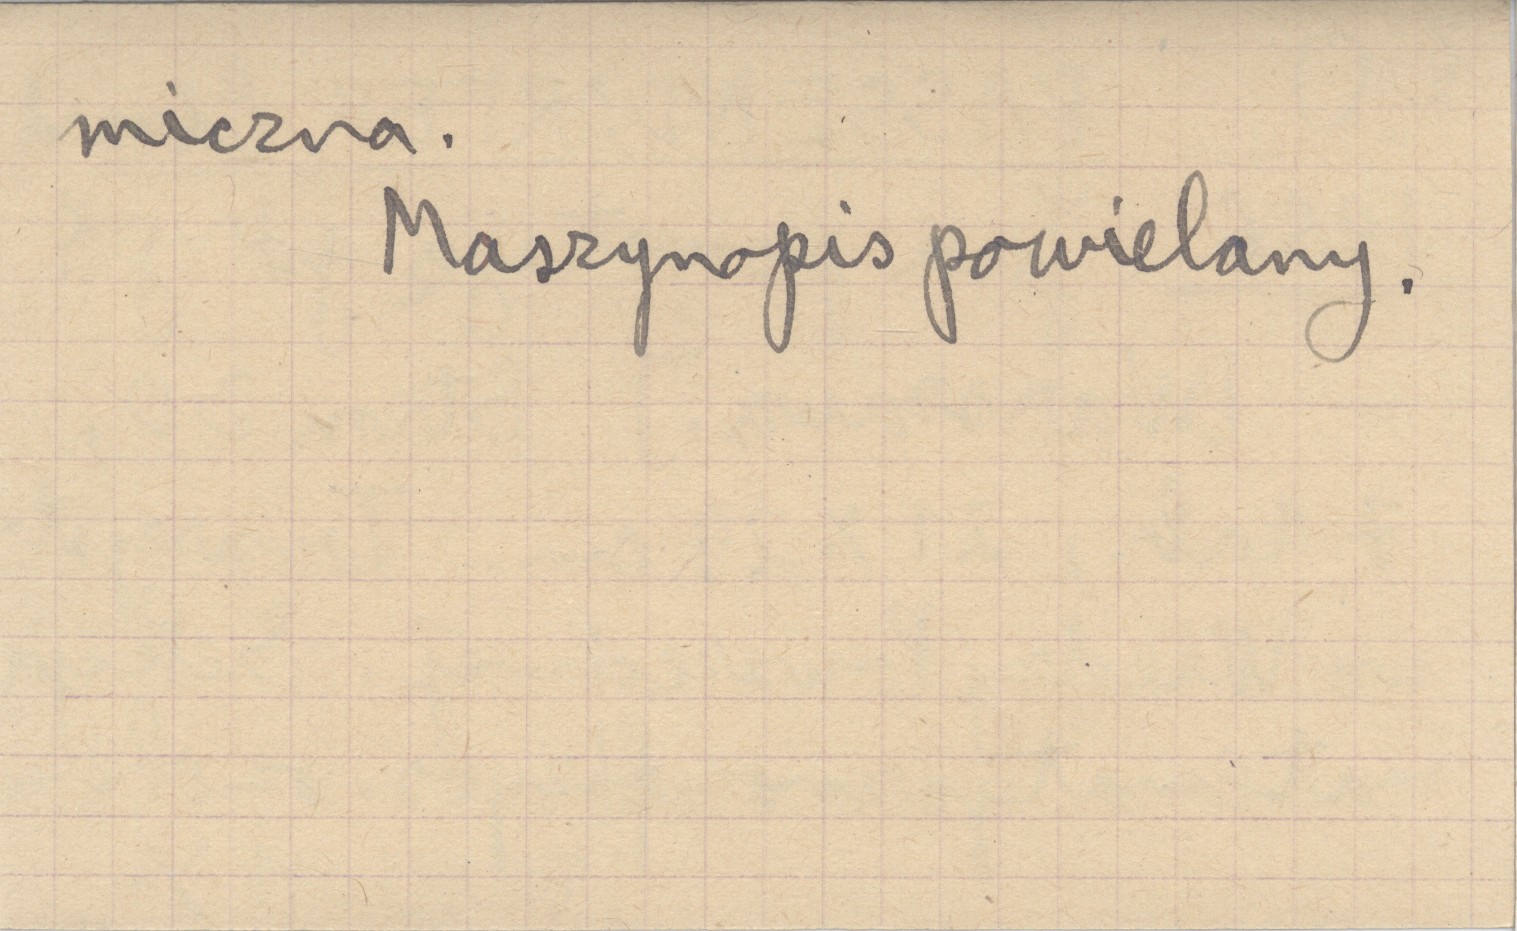 miczna.
Maszynopis powielany.